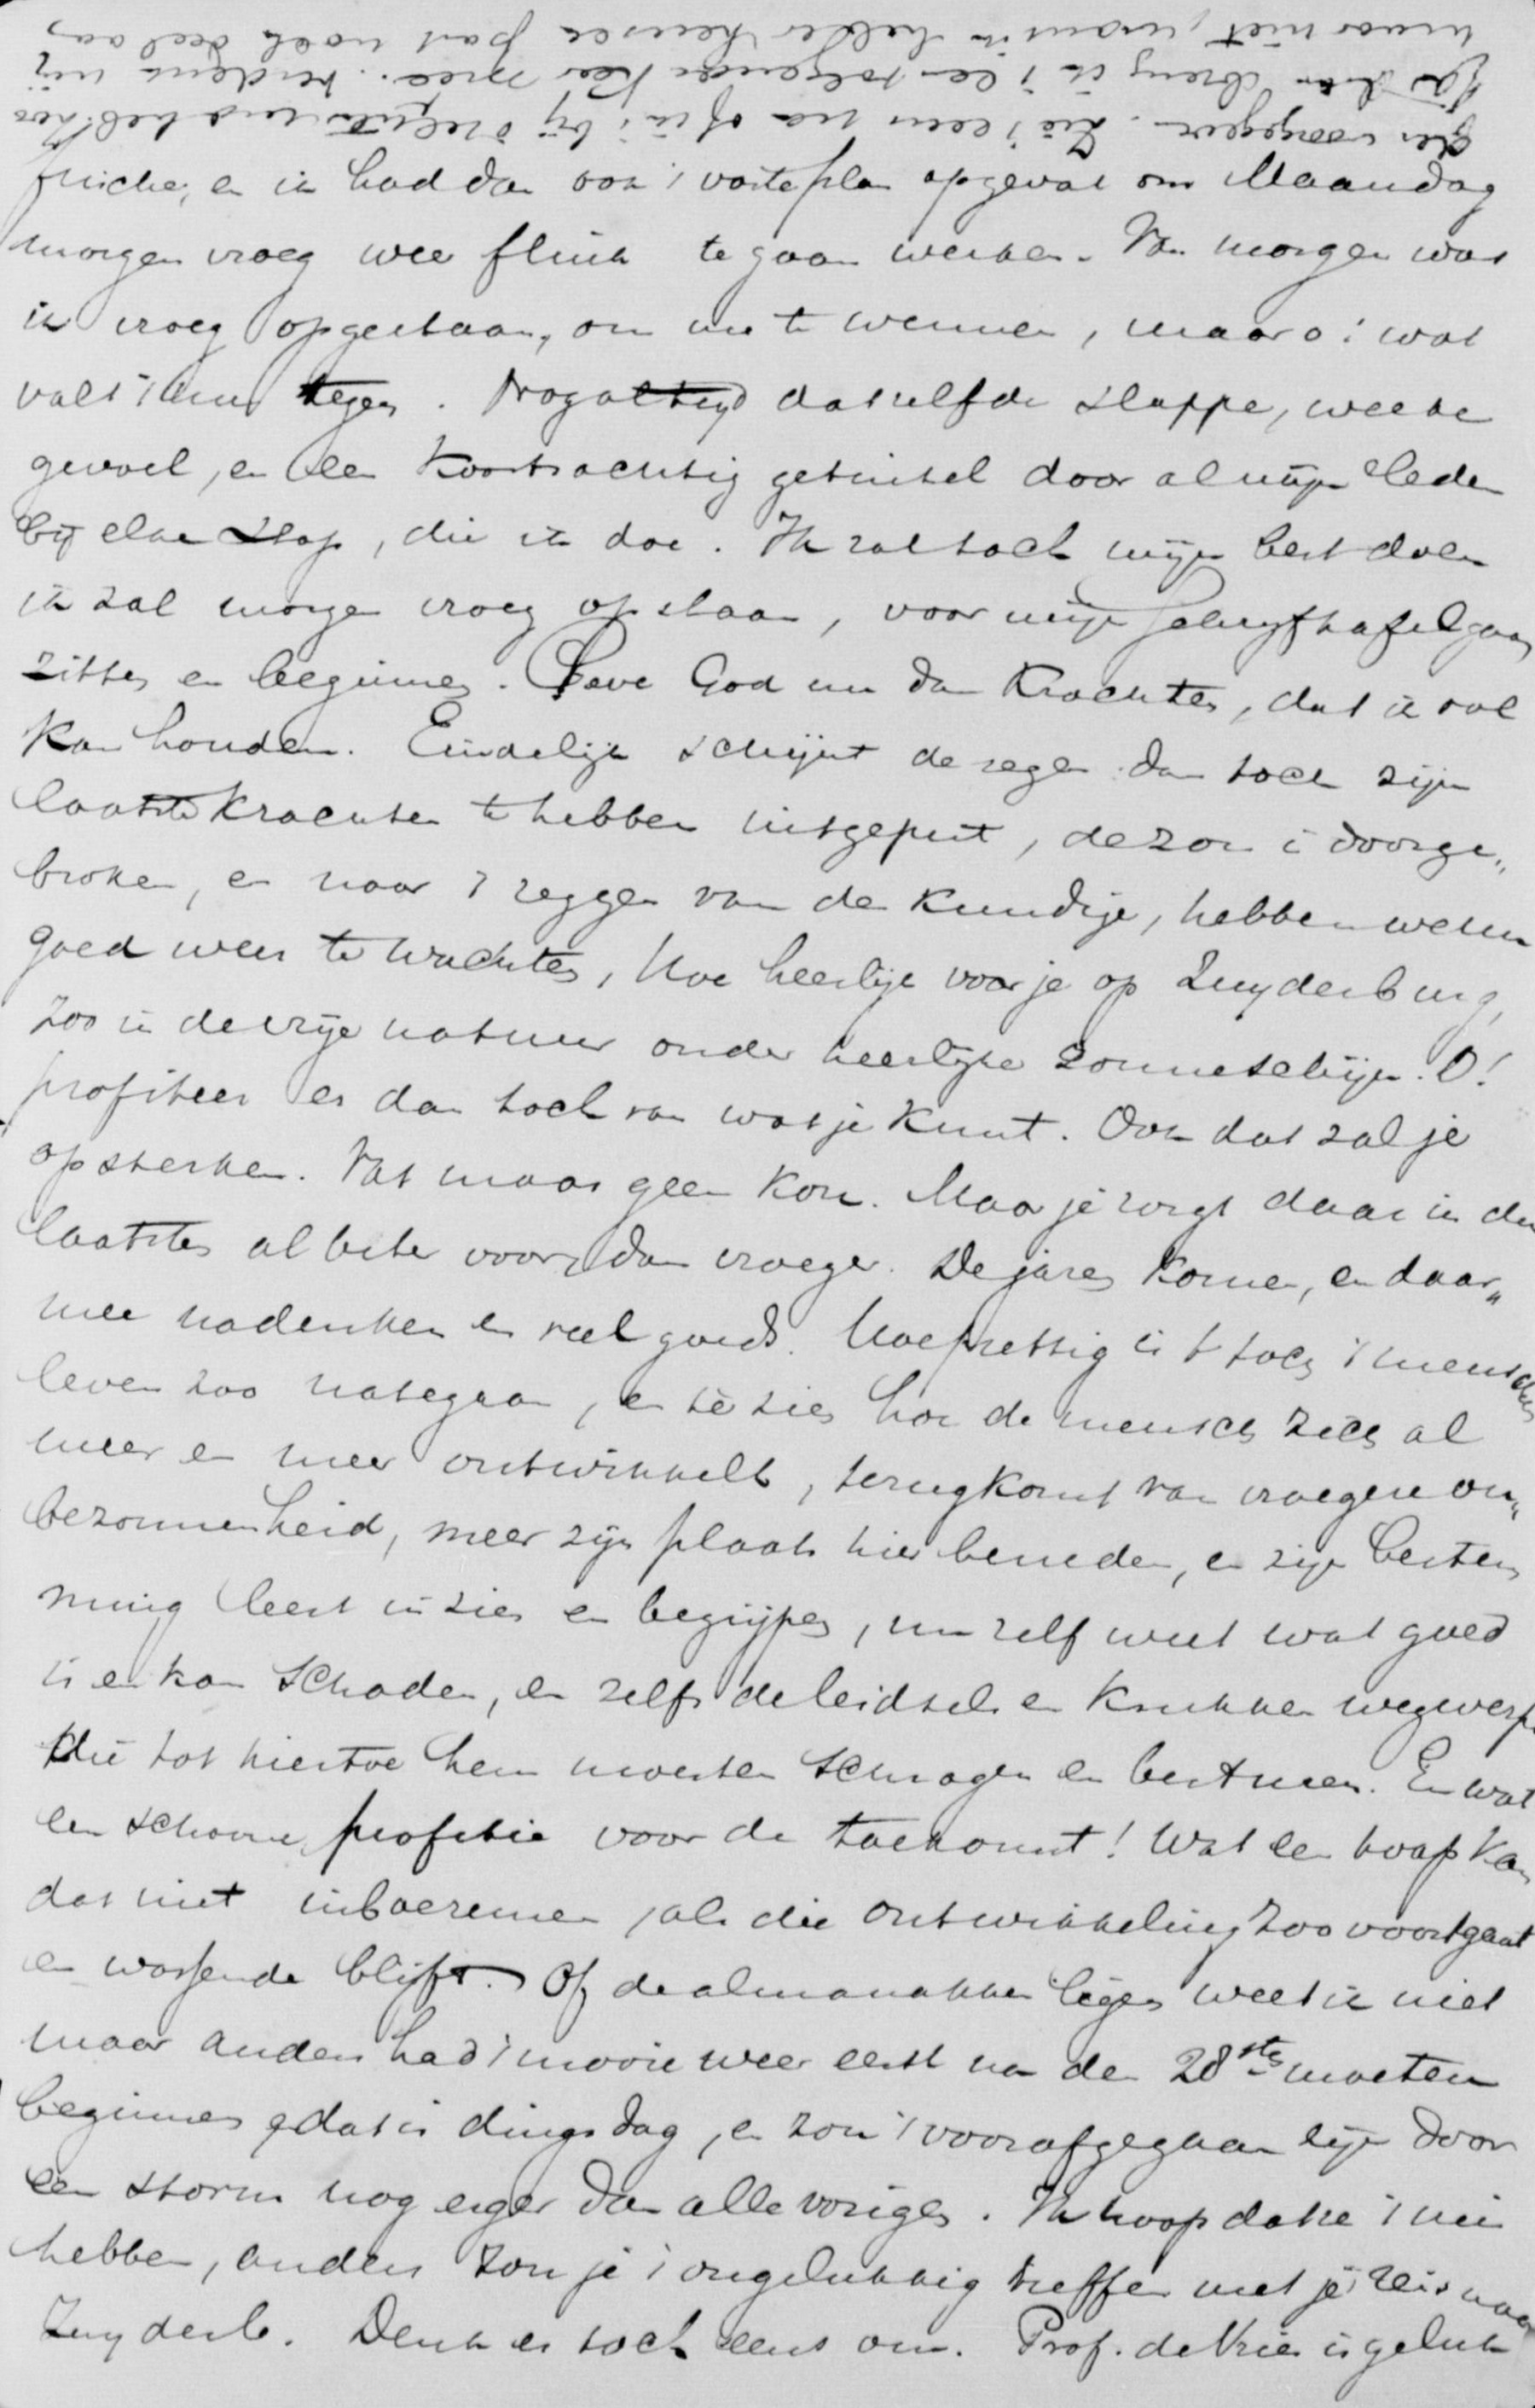 frisscher, en ik had dan ook 't vaste plan opgevat om Maandag
morgen vroeg weer flink te gaan werken. Van morgen was
ik vroeg opgestaan, om me te wennen, maar o! wat
valt 't me tegen. Nog altijd datzelfde slappe, weeke
gevoel, en een koortsachtig getintel door al mijn leden
bij elke stap, die ik doe. Ik zal toch mijn best doen
ik zal morgen vroeg opstaan, voor mijn schrijftafel gaan
zitten en beginnen. Geve God me dan krachten, dat ik vol
kan houden. Eindelijk schijnt de regen dan toch zijn
laatste krachten te hebben uitgeput, de zon is doorge„
broken, en naar 't zeggen van de kundige, hebben we nu
goed weer te wachten, Hoe heerlijk voor je op Zuyderburg,
zoo in de vrije natuur onder heerlijke zonneschijn. O!
profiteer er dan toch van wat je kunt. Ook dat zal je
opsterken. Vat maar geen kou. Maar je zorgt daar in den
laatsten al beter voor, dan vroeger. De jaren komen, en daar„
mee nadenken en veel goeds. Hoe prettig is 't toch 't menschen
leven zoo nategaan, en te zien hoe de mensch zich al
meer en meer ontwikkelt, terugkomt van vroegere on„
bezonnenheid, meer zijn plaats hier beneden, en zijn bestem
ming leert inzien en begrijpen, en zelf weet wat goed
is en kan schaden, en zelfs de leidsels en krukken wegwerpt
die tot hiertoe hem moesten schragen en besturen. En wat
een schoone profetie voor de toekomst! Wat een hoop kan
dat niet inboezemen, als die ontwikkeling zoo voortgaat
en wassende blijft. Of de almanakken liegen weet ik niet
maar anders had 't mooie weer eerst na den 28sten moeten
beginnen, dat is dingsdag, en zou 't voorafgegaan zijn door
een storm nog erger dan alle vorigen. Ik hoop dat ze 't mis
hebben, anders zou je 't ongelukkig treffen met je reis naar
Zuyderb. Denk er toch eens om. Prof. de Vries is geluk